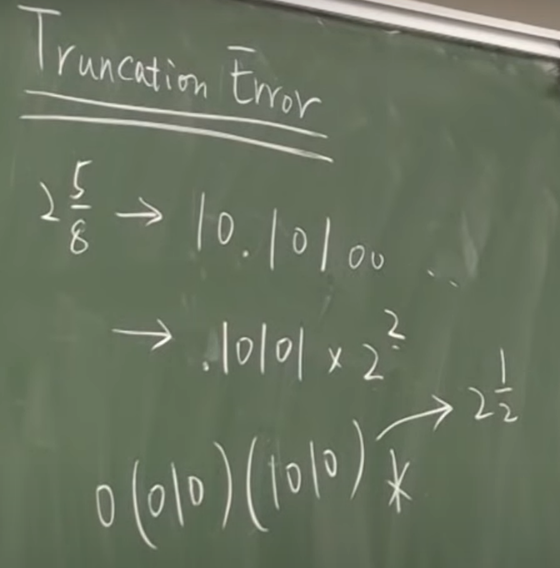 Truncation Error
2 5/8 → 10.10100 ..
→ .10101 × 2^2
0(010)(1010)* → 2 1/2